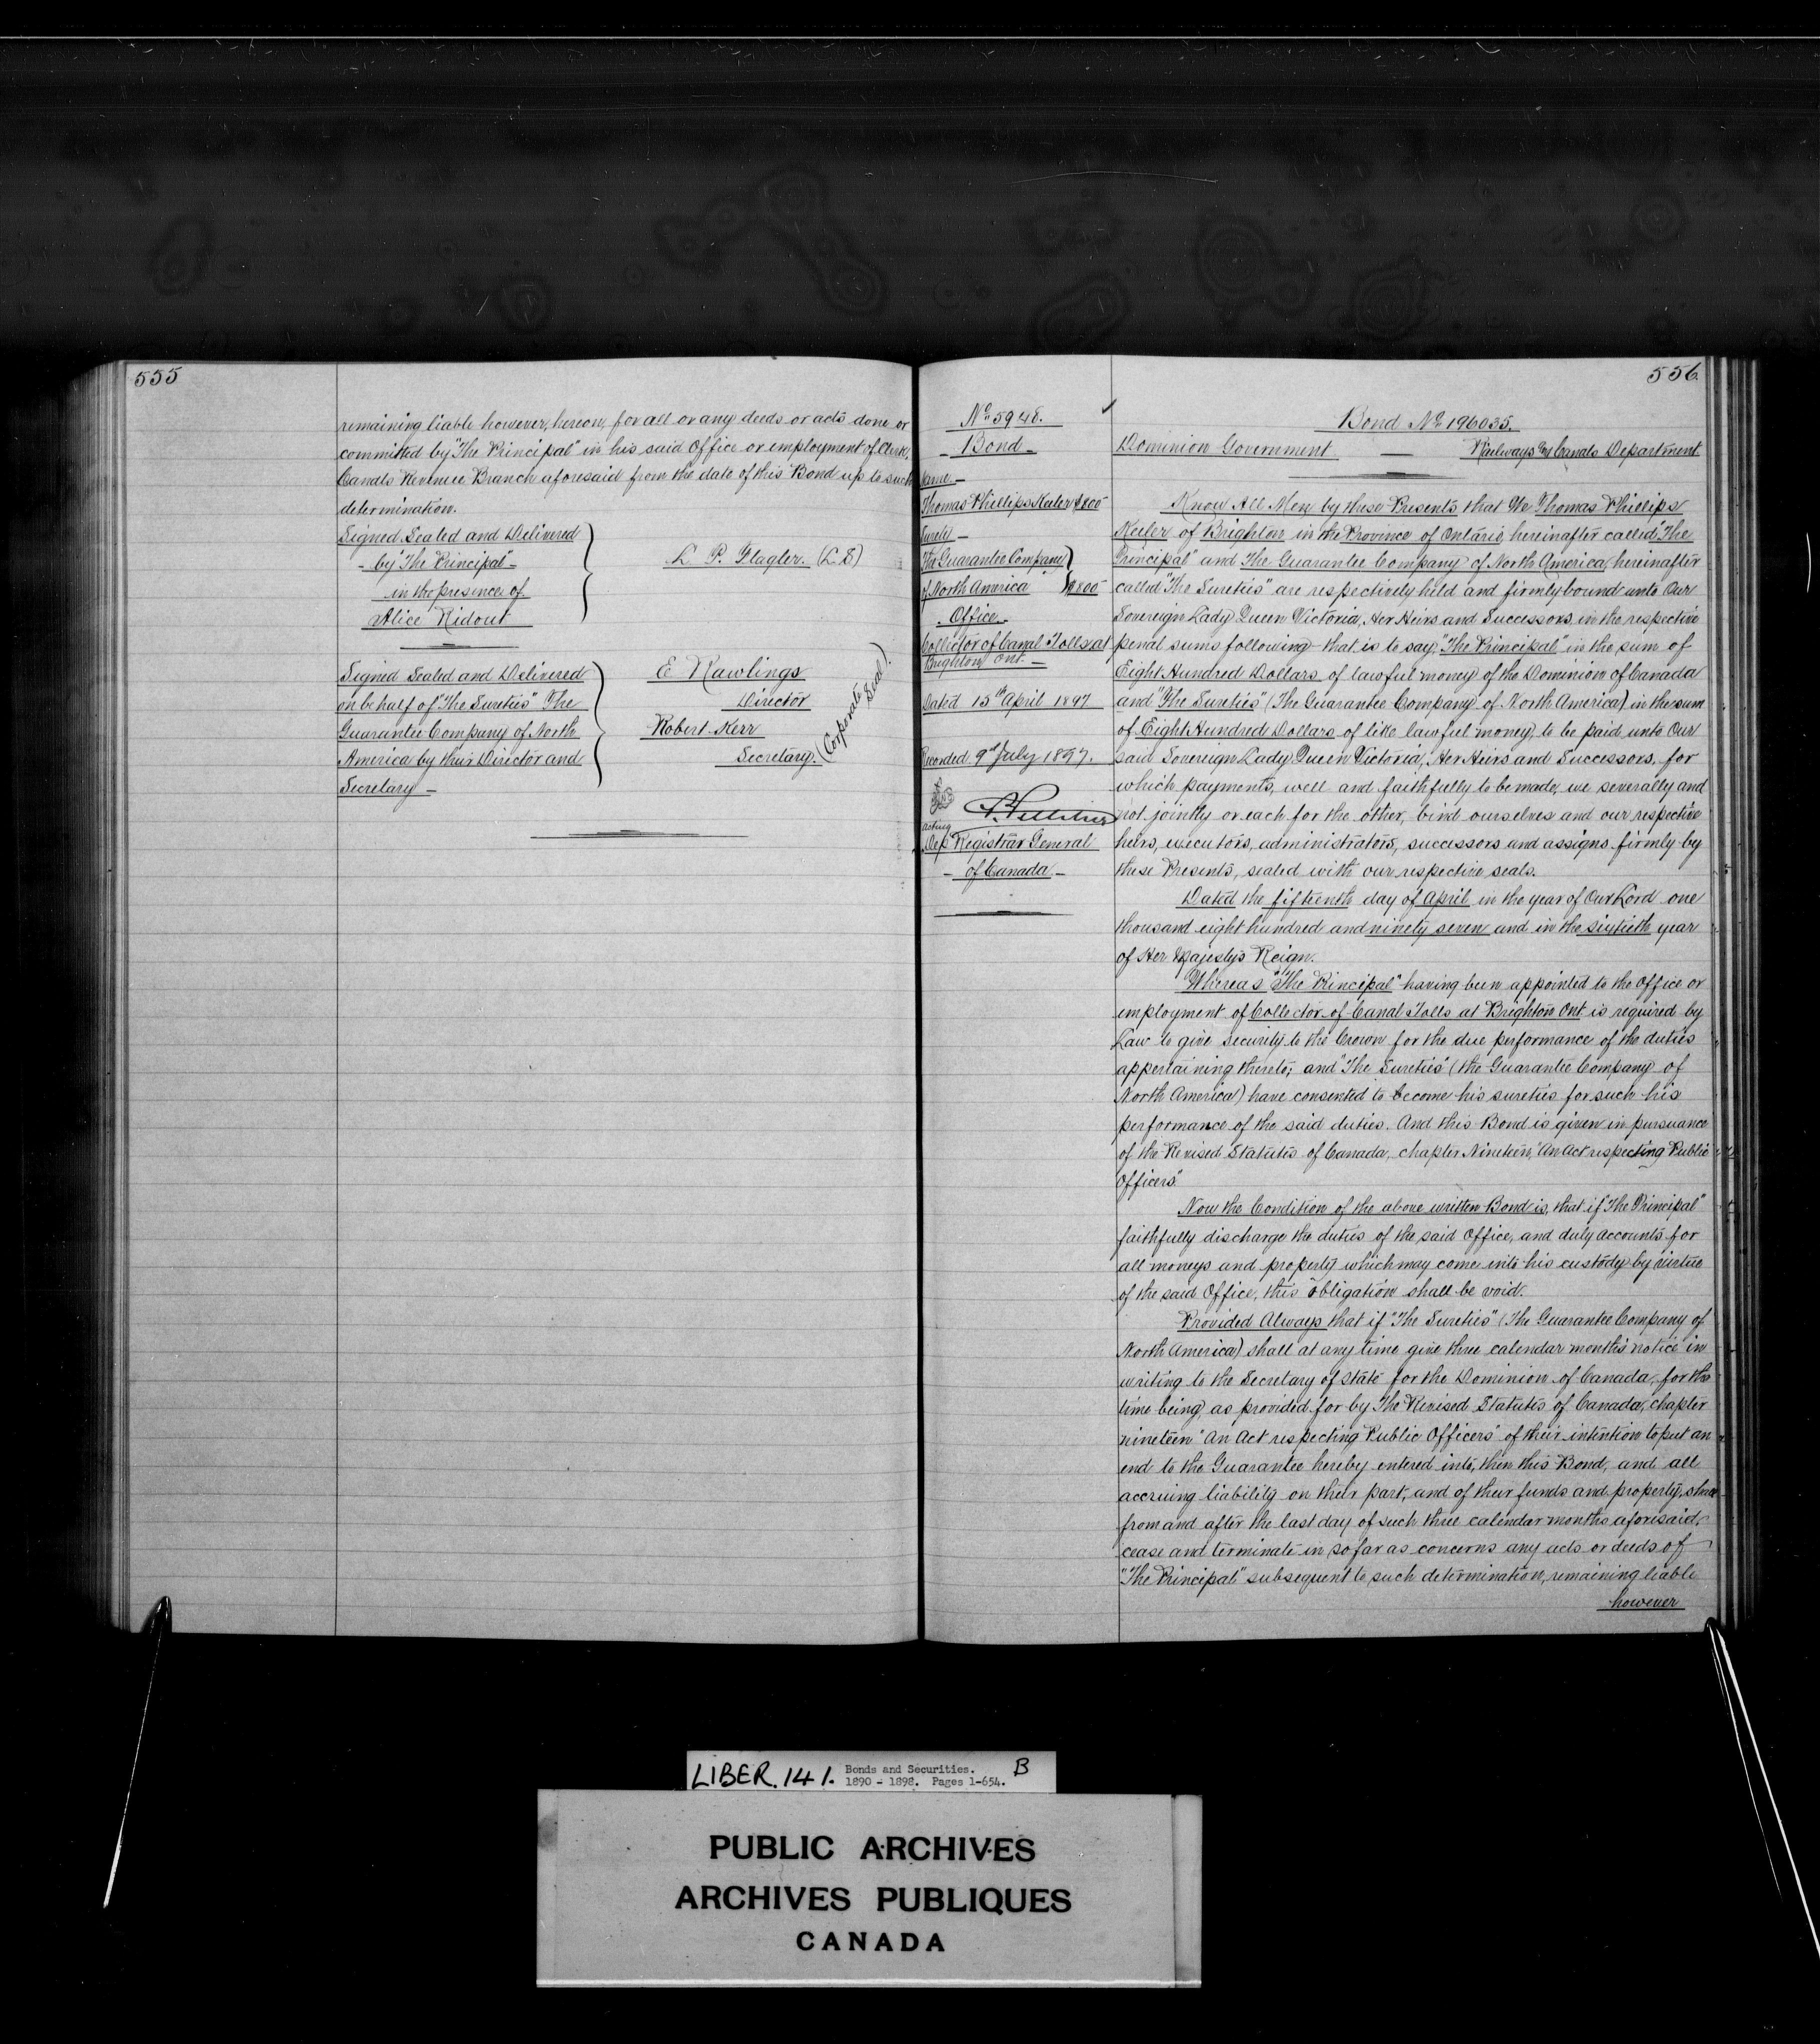 555
remaining liable however, hereon, for all or any deeds or acts done or
committed by "The Principal" in his said Office or employment of Clerk,
Canals Revenue Branch aforesaid from the date of this Bond up to such
determination.
Signed Sealed and Delivered
- by "The Principal" -
in the presence of
Alice Ridout
L. P. Flagler. (L.S)
Signed Sealed and Delivered
on behalf of "The Sureties" The
Guarantee Company of North
America by their Director and
Secretary -
E Rawlings
Director
Robert Kerr
Secretary.
(Corporate Seal)
556
No 5948.
- Bond -
Name -
Thomas Phillips Keeler $800
Surety -
The Guarantee Company
of North America $800
- Office -
Collector of Canal Tolls at
Brighton Ont. -
Dated 15th April 1897
Recorded 9th July 1897.
acting
Dep Registrar General
- of Canada -
Bond No 196035.
Dominion Government — Railways and Canals Department
Know All Men by these Presents that We Thomas Phillips
Keeler of Brighton in the Province of Ontario, hereinafter called "The
Principal" and The Guarantee Company of North America, hereinafter
called "The Sureties" are respectively held and firmly bound unto Our
Sovereign Lady Queen Victoria, Her Heirs and Successors, in the respective
penal sums following - that is to say; "The Principal" in the sum of
Eight Hundred Dollars of lawful money of the Dominion of Canada
and "The Sureties" (The Guarantee Company of North America) in the sum
of Eight Hundred Dollars of like lawful money, to be paid unto Our
said Sovereign Lady Queen Victoria, Her Heirs and Successors, for
which payments, well and faithfully to be made, we severally and
not jointly or each for the other, bind ourselves and our respective
heirs, executors, administrators, successors and assigns firmly by
these Presents, sealed with our respective seals.
Dated the fifteenth day of April in the year of Our Lord one
thousand eight hundred and ninety seven and in the sixtieth year
of Her Majesty's Reign.
Whereas "The Principal" having been appointed to the Office or
employment of Collector of Canal Tolls at Brighton Ont is required by
Law to give security to the Crown for the due performance of the duties
appertaining thereto; and "The Sureties" (the Guarantee Company of
North America) have consented to become his sureties for such his
performance of the said duties. And this Bond is given in pursuance
of the Revised Statutes of Canada, chapter Nineteen, "An Act respecting Public
Officers."
Now the Condition of the above written Bond is, that if "The Principal"
faithfully discharge the duties of the said Office, and duly accounts for
all moneys and property which may come into his custody by virtue
of the said Office, this obligation shall be void.
Provided Always that if "The Sureties" (The Guarantee Company of
North America) shall at any time give three calendar months notice in
writing to the Secretary of State for the Dominion of Canada, for the
time being, as provided for by The Revised Statutes of Canada, chapter
nineteen "An Act respecting Public Officers" of their intention to put an
end to the Guarantee hereby entered into, then this Bond, and all
accruing liability on their part, and of their funds and property, shall
from and after the last day of such three calendar months aforesaid,
cease and terminate in so far as concerns any acts or deeds of
"The Principal" subsequent to such determination, remaining liable
however
LIBER. 141. Bonds and Securities. B
1890 - 1898. Pages 1-654.
PUBLIC ARCHIVES
ARCHIVES PUBLIQUES
CANADA